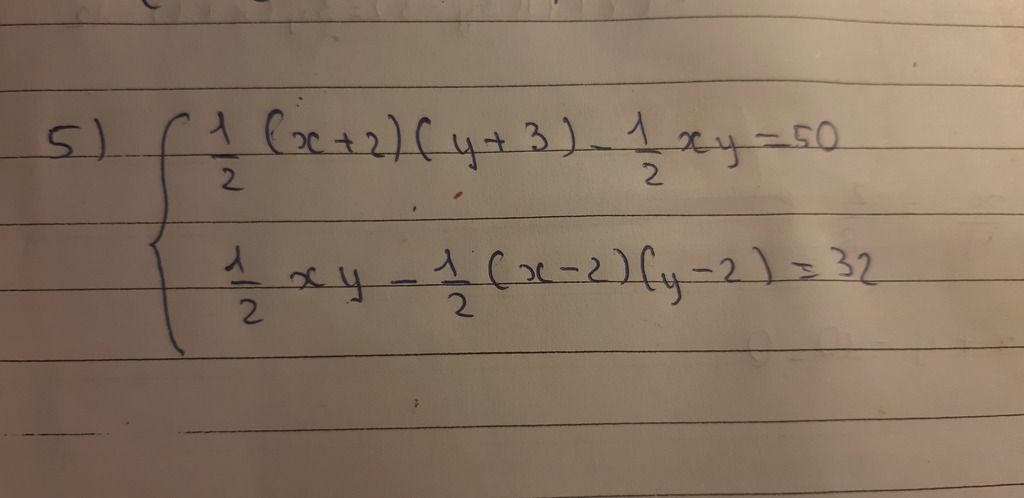 5) { 1/2 (x+2)(y+3) - 1/2 xy = 50
1/2 xy - 1/2 (x-2)(y-2) = 32